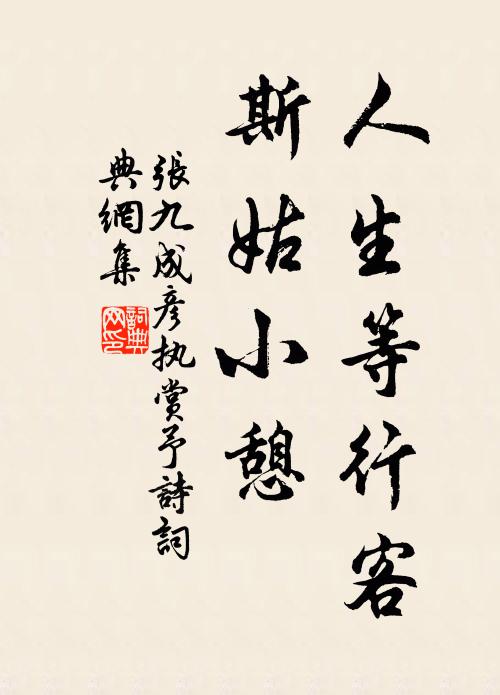 人生等行客
斯姑小憩
張九成彦执賞予詩詞
典網集
詞典网印